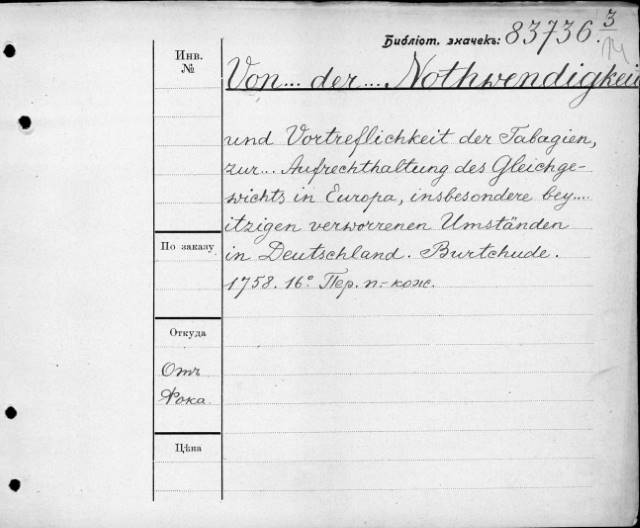 Библіот. значекъ: 83736. 3/14
Инв.
№
Von ... der ... Nothwendigkeit
und Vortreflichkeit der Tabagien,
zur ... Aufrechthaltung des Gleichge-
wichts in Europa, insbesondere bey ....
itzigen verworrenen Umständen
По заказу
in Deutschland. Burtchude.
1758. 16° Пер. п.-кож.
Откуда
Отъ
Фока.
Цѣна